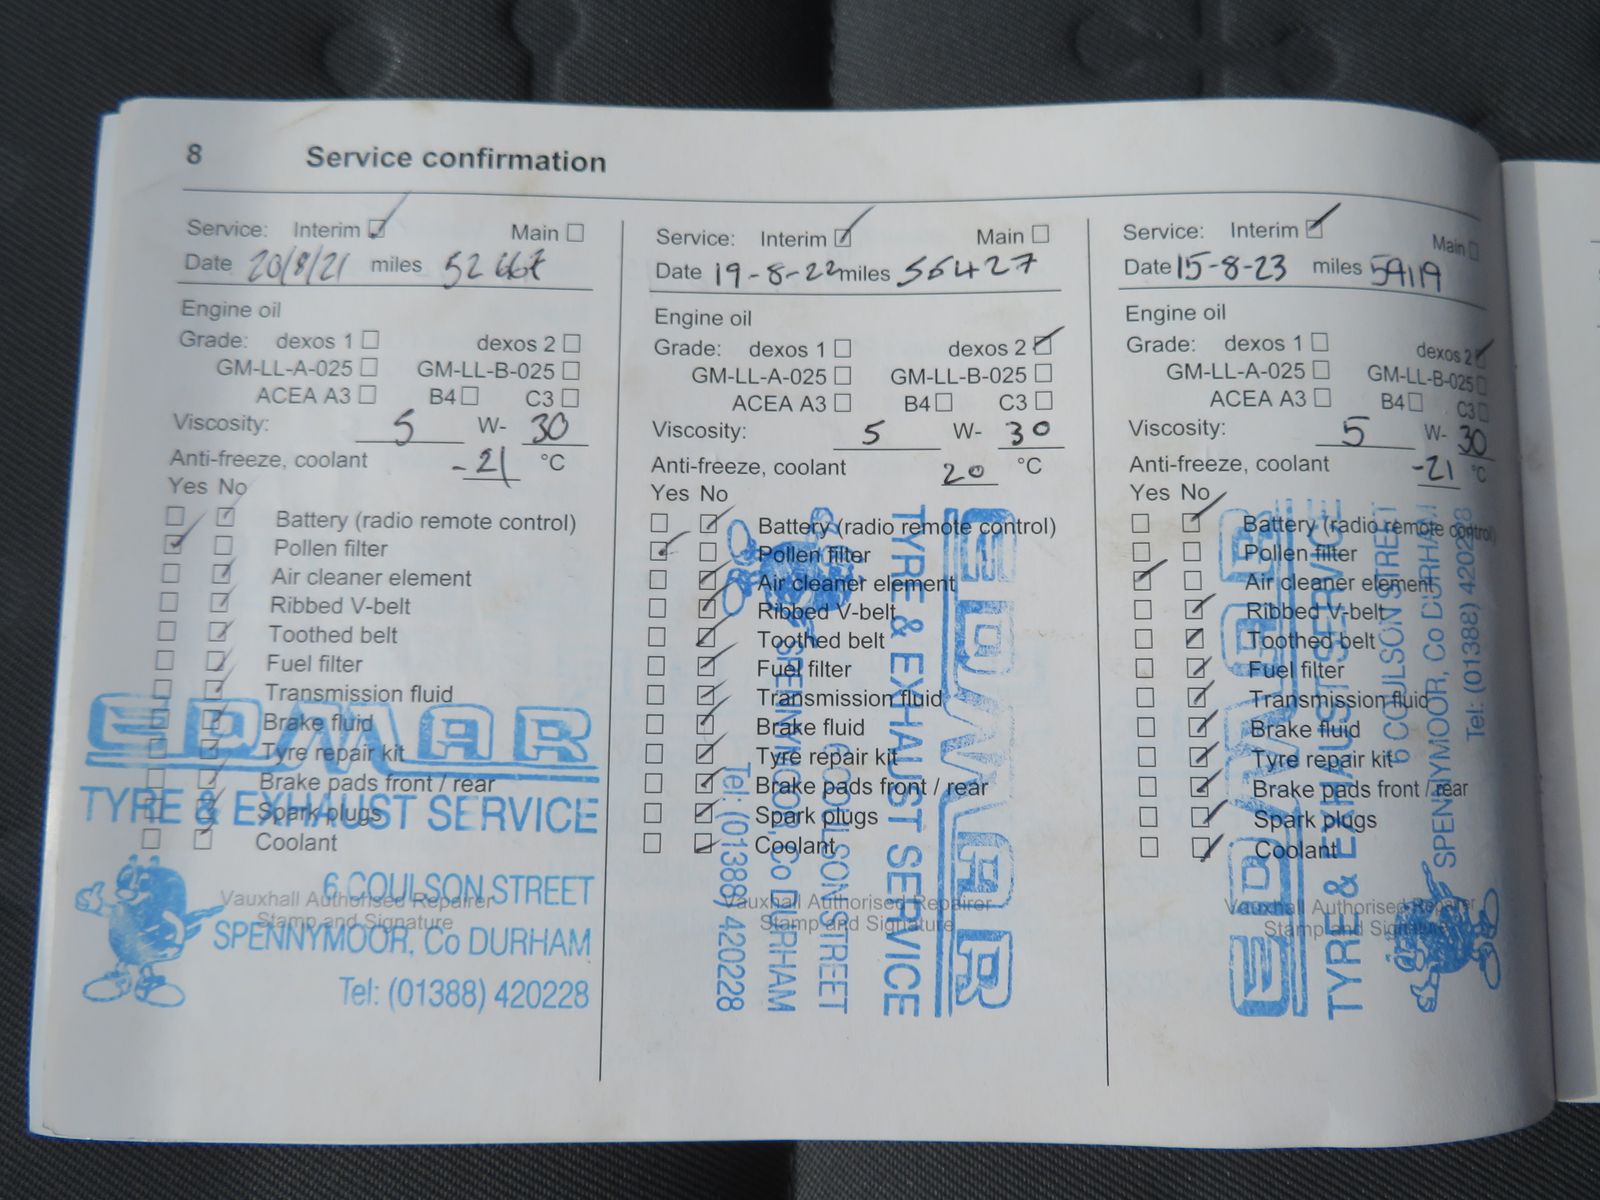 8 Service confirmation
Service: Interim ☑ Main ☐
Date 20/8/21 miles 52667
Engine oil
Grade: dexos 1 ☐ dexos 2 ☐
GM-LL-A-025 ☐ GM-LL-B-025 ☐
ACEA A3 ☐ B4 ☐ C3 ☐
Viscosity: 5 W- 30
Anti-freeze, coolant -21 °C
Yes No
☐ ☑ Battery (radio remote control)
☑ ☐ Pollen filter
☐ ☑ Air cleaner element
☐ ☑ Ribbed V-belt
☐ ☑ Toothed belt
☐ ☑ Fuel filter
☐ ☑ Transmission fluid
☐ ☑ Brake fluid
☐ ☑ Tyre repair kit
☐ ☑ Brake pads front / rear
☐ ☑ Spark plugs
☐ ☑ Coolant
Vauxhall Authorised Repairer
Stamp and Signature
EDMAR
TYRE & EXHAUST SERVICE
6 COULSON STREET
SPENNYMOOR, Co DURHAM
Tel: (01388) 420228
Service: Interim ☑ Main ☐
Date 19-8-22 miles 56427
Engine oil
Grade: dexos 1 ☐ dexos 2 ☑
GM-LL-A-025 ☐ GM-LL-B-025 ☐
ACEA A3 ☐ B4 ☐ C3 ☐
Viscosity: 5 W- 30
Anti-freeze, coolant 20 °C
Yes No
☐ ☑ Battery (radio remote control)
☑ ☐ Pollen filter
☐ ☑ Air cleaner element
☐ ☑ Ribbed V-belt
☐ ☑ Toothed belt
☐ ☑ Fuel filter
☐ ☑ Transmission fluid
☐ ☑ Brake fluid
☐ ☑ Tyre repair kit
☐ ☑ Brake pads front / rear
☐ ☑ Spark plugs
☐ ☑ Coolant
Vauxhall Authorised Repairer
Stamp and Signature
EDMAR
TYRE & EXHAUST SERVICE
6 COULSON STREET
SPENNYMOOR, Co DURHAM
Tel: (01388) 420228
Service: Interim ☑ Main ☐
Date 15-8-23 miles 59119
Engine oil
Grade: dexos 1 ☐ dexos 2 ☑
GM-LL-A-025 ☐ GM-LL-B-025 ☐
ACEA A3 ☐ B4 ☐ C3 ☐
Viscosity: 5 W- 30
Anti-freeze, coolant -21 °C
Yes No
☐ ☑ Battery (radio remote control)
☐ ☐ Pollen filter
☑ ☐ Air cleaner element
☐ ☑ Ribbed V-belt
☐ ☑ Toothed belt
☐ ☑ Fuel filter
☐ ☑ Transmission fluid
☐ ☑ Brake fluid
☐ ☑ Tyre repair kit
☐ ☑ Brake pads front / rear
☐ ☑ Spark plugs
☐ ☑ Coolant
Vauxhall Authorised Repairer
Stamp and Signature
EDMAR
TYRE & EXHAUST SERVICE
6 COULSON STREET
SPENNYMOOR, Co DURHAM
Tel: (01388) 420228